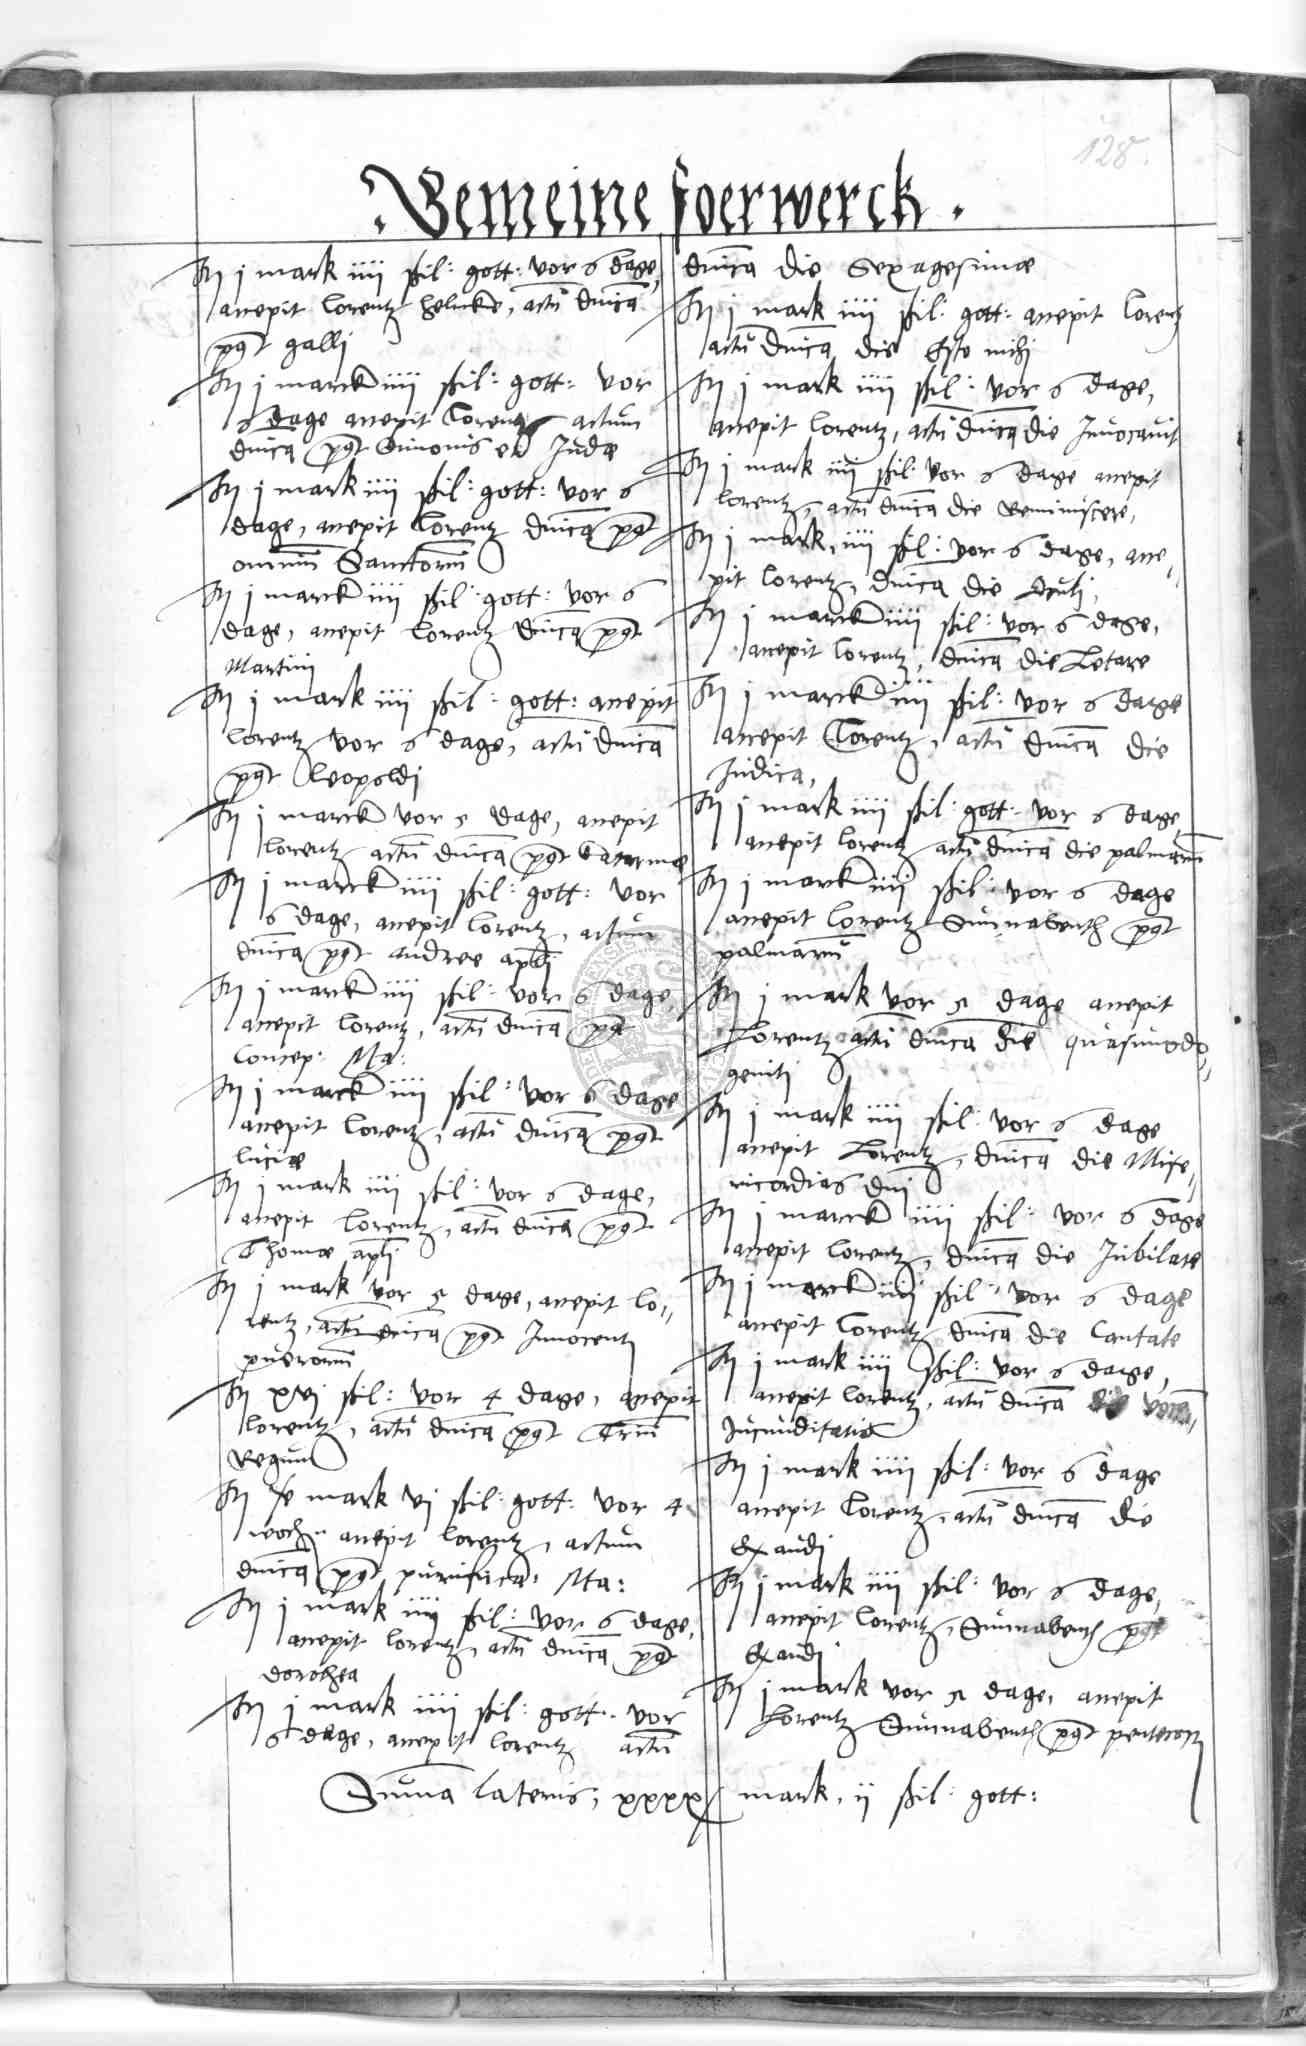 128.
Gemeine foerwerck.
Itm j mark iiii ßil: gott: vor 6 dage,
accepit Lorentz helmke, actū dnica
post galli
Itm j marck iiii ßil: gott: vor
6 dage accepit Lorentz actum
dnica post Simonis et Judæ
Itm j mark iiii ßil: gott: vor 6
dage, accepit Lorentz dnica post
omniū Sanctorū
Itm j marck iiii ßil: gott: vor 6
dage, accepit Lorentz dnica post
Martini
Itm j mark iiii ßil: gott: accepit
Lorentz vor 6 dage, actū dnica
post Leopoldi
Itm j marck vor 5 dage, accepit
Lorentz actū dnica post Catarinæ
Itm j marck iiii ßil: gott: vor
6 dage, accepit Lorentz, actum
dnica post andree apli
Itm j marck iiii ßil: vor 6 dage,
accepit Lorentz, actū dnica post
Concep: Ma:
Itm j marck iiii ßil: vor 6 dage
accepit Lorentz, actū dnica post
Luciæ
Itm j mark iiii ßil: vor 6 dage,
accepit Lorentz, actū dnica post
Thomæ apli
Itm j mark vor 5 dage, accepit Lo,,
rentz, actū dnica post Innocentū
puerorū
Itm xvj ßil: vor 4 dage, accepit
Lorentz, actū dnica post Triū
Regum
Itm mark vj ßil: gott: vor 4
woch accepit Lorentz, actum
dnica post purifica: Ma:
Itm j mark iiii ßil: vor 6 dage,
accepit Lorentz, actū dnica post
dorothea
Itm j mark iiii ßil: gott: vor
6 dage, accepit Lorentz actū
dnica die Sexagesimæ
Itm j mark iiii ßil: gott: accepit Lorentz
actū dnica die Esto mihi
Itm j mark iiii ßil: vor 6 dage,
accepit Lorentz, actū dnica die Invocavit
Itm j mark iiii ßil: vor 6 dage accepit
Lorentz, actū dnica die Reminiscere,
Itm j mark, iiii ßil: vor 6 dage, acce,,
pit Lorentz, dnica die Oculi,
Itm j marck iiii ßil: vor 6 dage,
accepit Lorentz, dnica die Letare
Itm j marck iiii ßil: vor 6 dage
accepit Lorentz, actū dnica die
Judica,
Itm j mark iiii ßil: gott: vor 6 dage,
accepit Lorentz actū dnica die palmarū
Itm j marck iiii ßil: vor 6 dage
accepit Lorentz Sunnabenth post
palmarū
Itm j mark vor 5 dage accepit
Lorentz actū dnica die quasimodo,,
geniti
Itm j mark iiii ßil: vor 6 dage
accepit Lorentz, dnica die Mise,,
ricordias dni
Itm j marck iiii ßil: vor 6 dage
accepit Lorentz, dnica die Jubilate
Itm j marck iiii ßil: vor 6 dage
accepit Lorentz dnica die Cantate
Itm j mark iiii ßil: vor 6 dage,
accepit Lorentz, actū dnica die vocē,,
Jucunditatis
Itm j mark iiii ßil: vor 6 dage
accepit Lorentz, actū dnica die
Exaudi
Itm j mark iiii ßil: vor 6 dage,
accepit Lorentz, Sunnabenth post
Exaudi
Itm j mark vor 5 dage, accepit
Lorentz Sunnabenth post pentecost
Suma lateris, xxxx mark, ii ßil: gott: